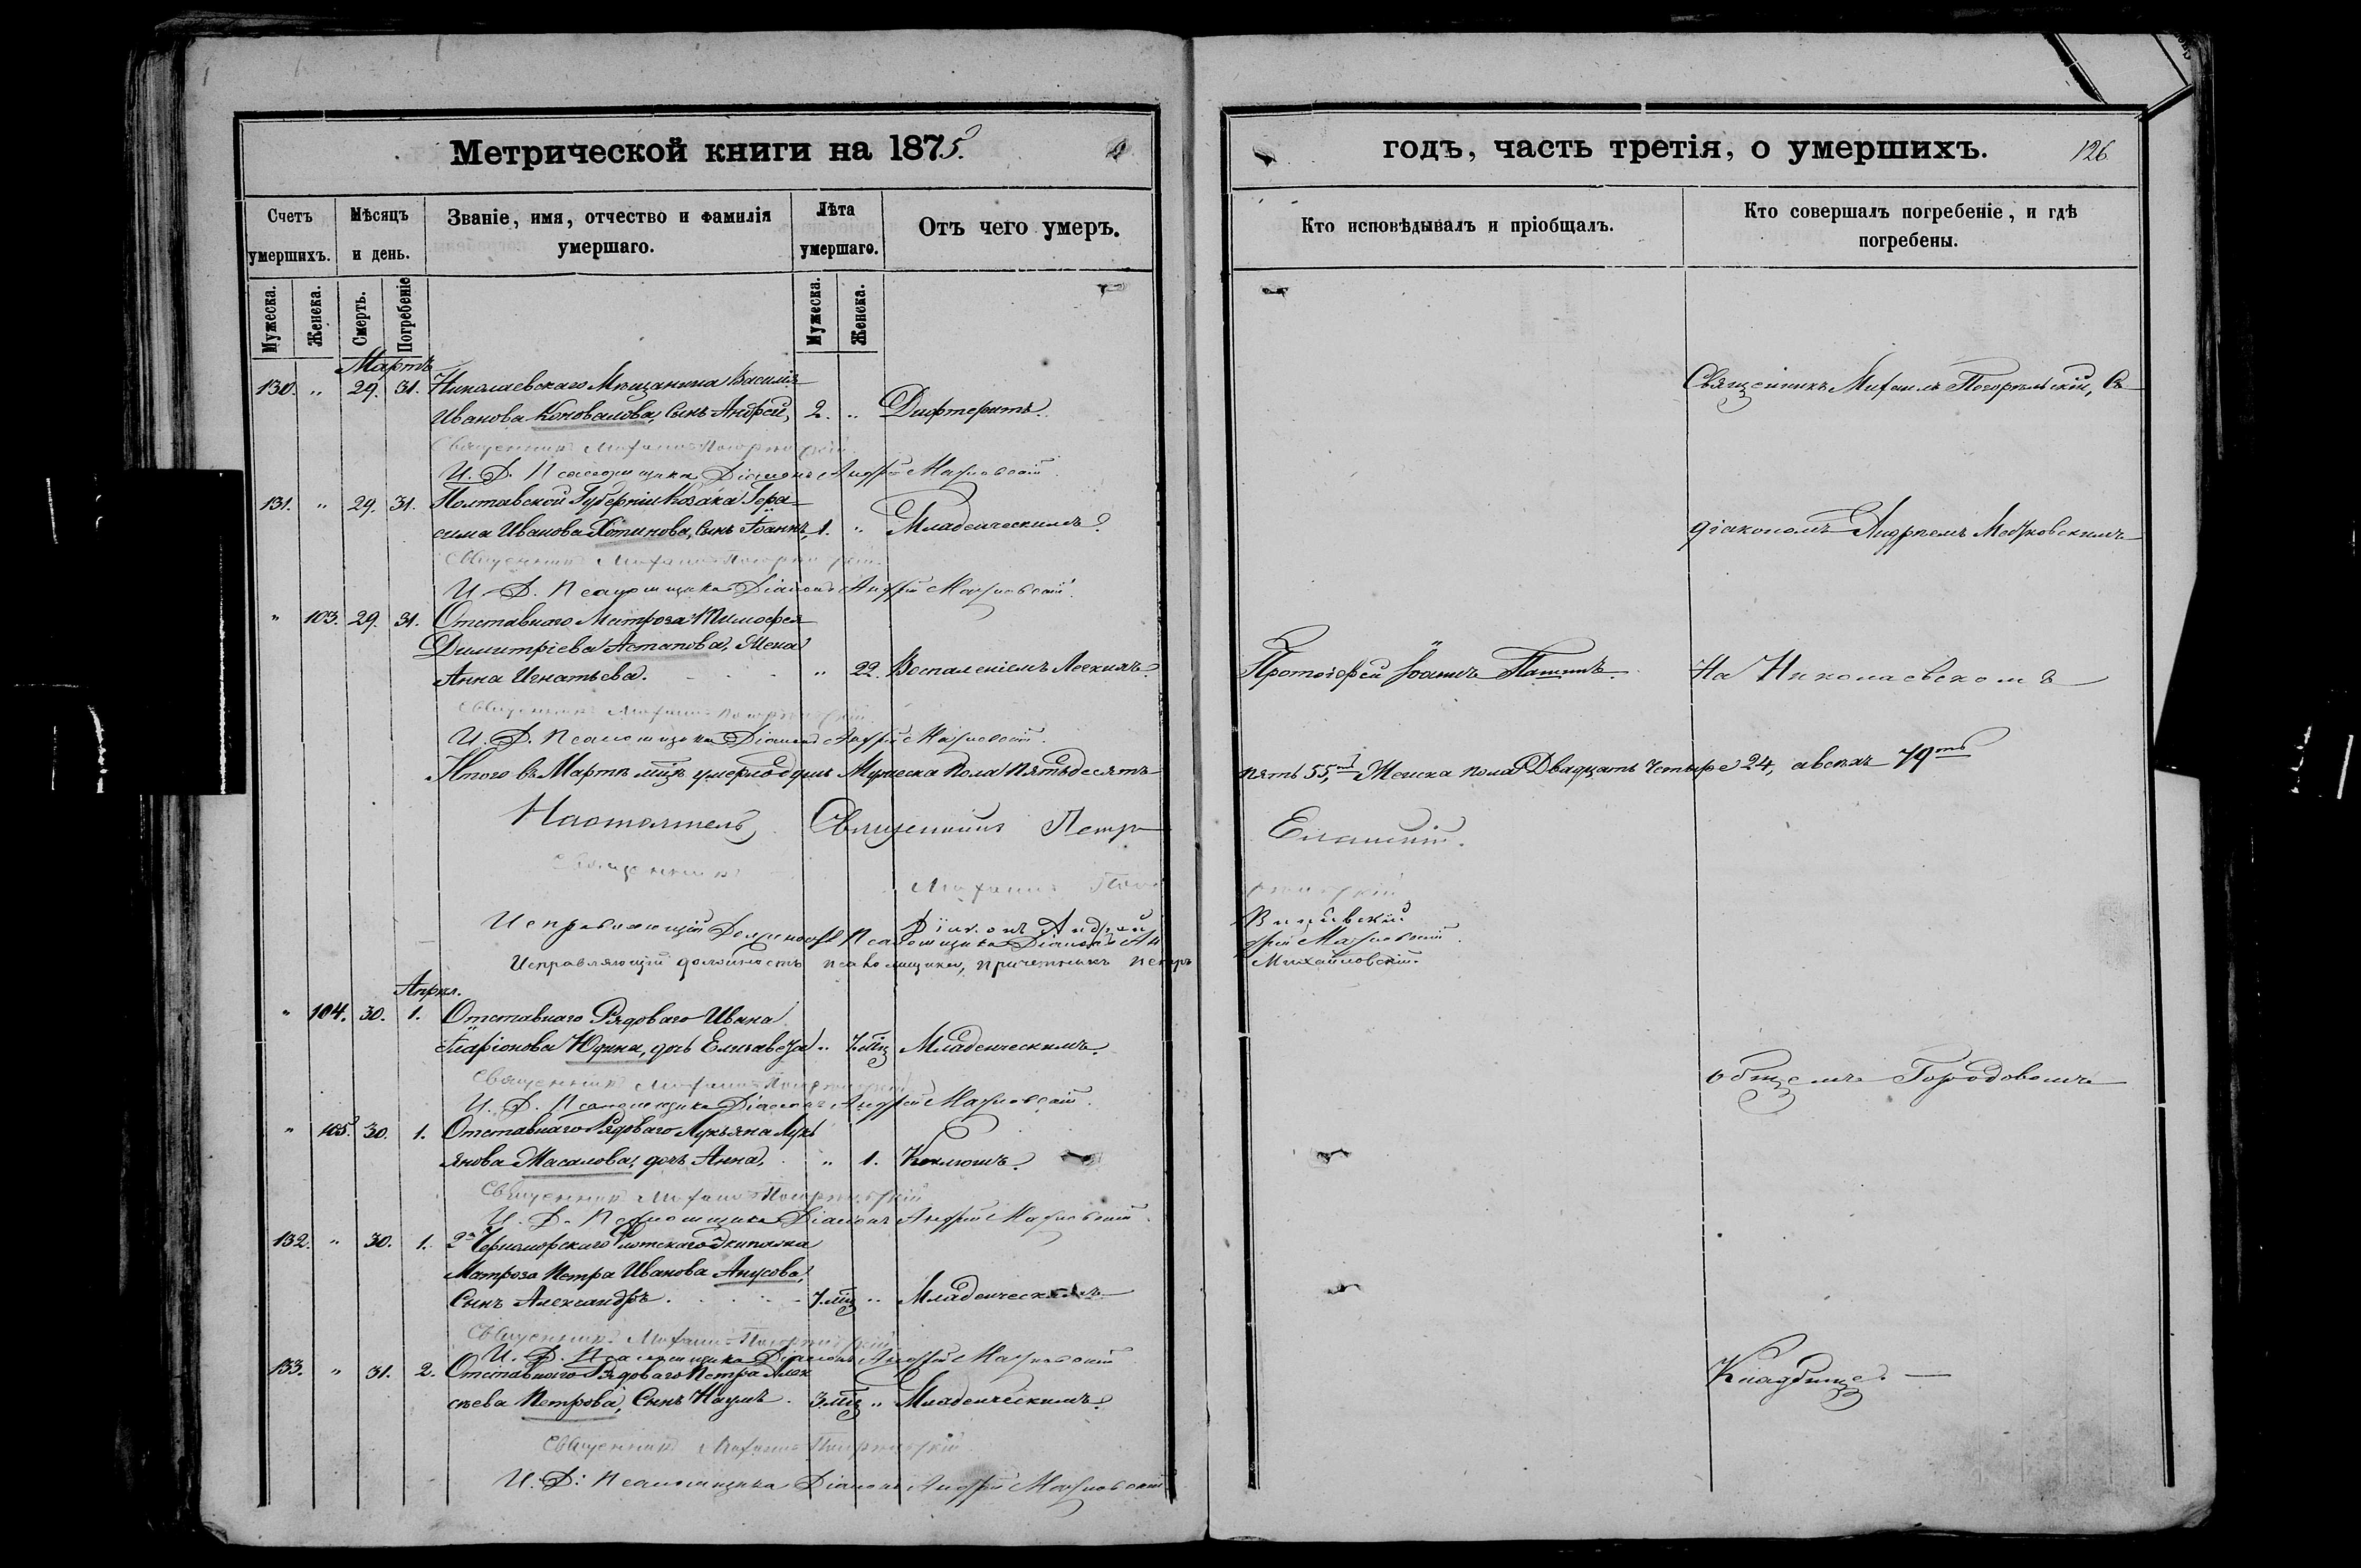 Метрической книги на 1875.
Счетъ умершихъ.
Мѣсяцъ и день.
Званіе, имя, отчество и фамилія умершаго.
Лѣта умершаго.
Отъ чего умеръ.
Мужеска.
Женска.
Смерть.
Погребеніе
Мужеска.
Женска.
Мартъ
130. " 29. 31. Николаевскаго Мѣщанина Василія
Иванова Коновалова, Сынъ Андрей, 2. " Дифтеритъ.
Священникъ Михаилъ Погорѣльскій
И. Д. Псаломщика Діаконъ Андрей
131. " 29. 31. Полтавской Губерніи Козака Гера-
сима Иванова Хотинова, Сынъ Іоаннъ, 1. " Младенческимъ.
Священникъ Михаилъ Погорѣльскій
И. Д. Псаломщика Діаконъ Андрей
" 103. 29. 31. Отставнаго Матроза Тимофея
Димитріева Астапова, Жена
Анна Игнатьева. " 22. Воспаленіемъ Легкихъ.
Священникъ Михаилъ Погорѣльскій
И. Д. Псаломщика Діаконъ Андрей
Итого въ Мартѣ мѣ͠цѣ умерло душъ Мужеска пола Пятьдесятъ
Настоятель, Священникъ Петръ
Священникъ Михаилъ
Діаконъ Андрей
Исправляющій Должность Псаломщика Діаконъ Ан
Исправляющій должность псаломщика, причетникъ Петръ
Апрѣл.
" 104. 30. 1. Отставнаго Рядоваго Ивана
Иларіонова Юдина, дочь Елисавета " 7. мѣц Младенческимъ.
Священникъ Михаилъ Погорѣльскій
И. Д. Псаломщика Діаконъ Андрей
" 105. 30. 1. Отставнаго Рядоваго Лукьяна Лукь
янова Масалова, дочь Анна, " 1. Коклюшъ.
Священникъ Михаилъ Погорѣльскій
И. Д. Псаломщика Діаконъ Андрей
132. " 30. 1. 2го Черноморскаго Флотскаго Экипажа
Матроза Петра Иванова Анусова,
Сынъ Александръ. 7. мѣц " Младенческимъ
Священникъ Михаилъ Погорѣльскій
И. Д. Псаломщика Діаконъ Андрей
133. " 31. 2. Отставнаго Рядоваго Петра Алек
сѣева Петрова, Сынъ Наумъ. 3. мѣц " Младенческимъ.
Священникъ Михаилъ Погорѣльскій
И. Д. Псаломщика Діаконъ Андрей
годъ, часть третія, о умершихъ.
126
Кто исповѣдывалъ и пріобщалъ.
Кто совершалъ погребеніе, и гдѣ погребены.
Священникъ Михаилъ Погорѣльскій, съ
діакономъ Андреемъ
Протоіерей Іоаннъ
На Николаевскомъ
пять 55, Женска пола Двадцать Четыре 24, а всѣхъ 79
Михайловскій.
общемъ Городовомъ
Кладбище.